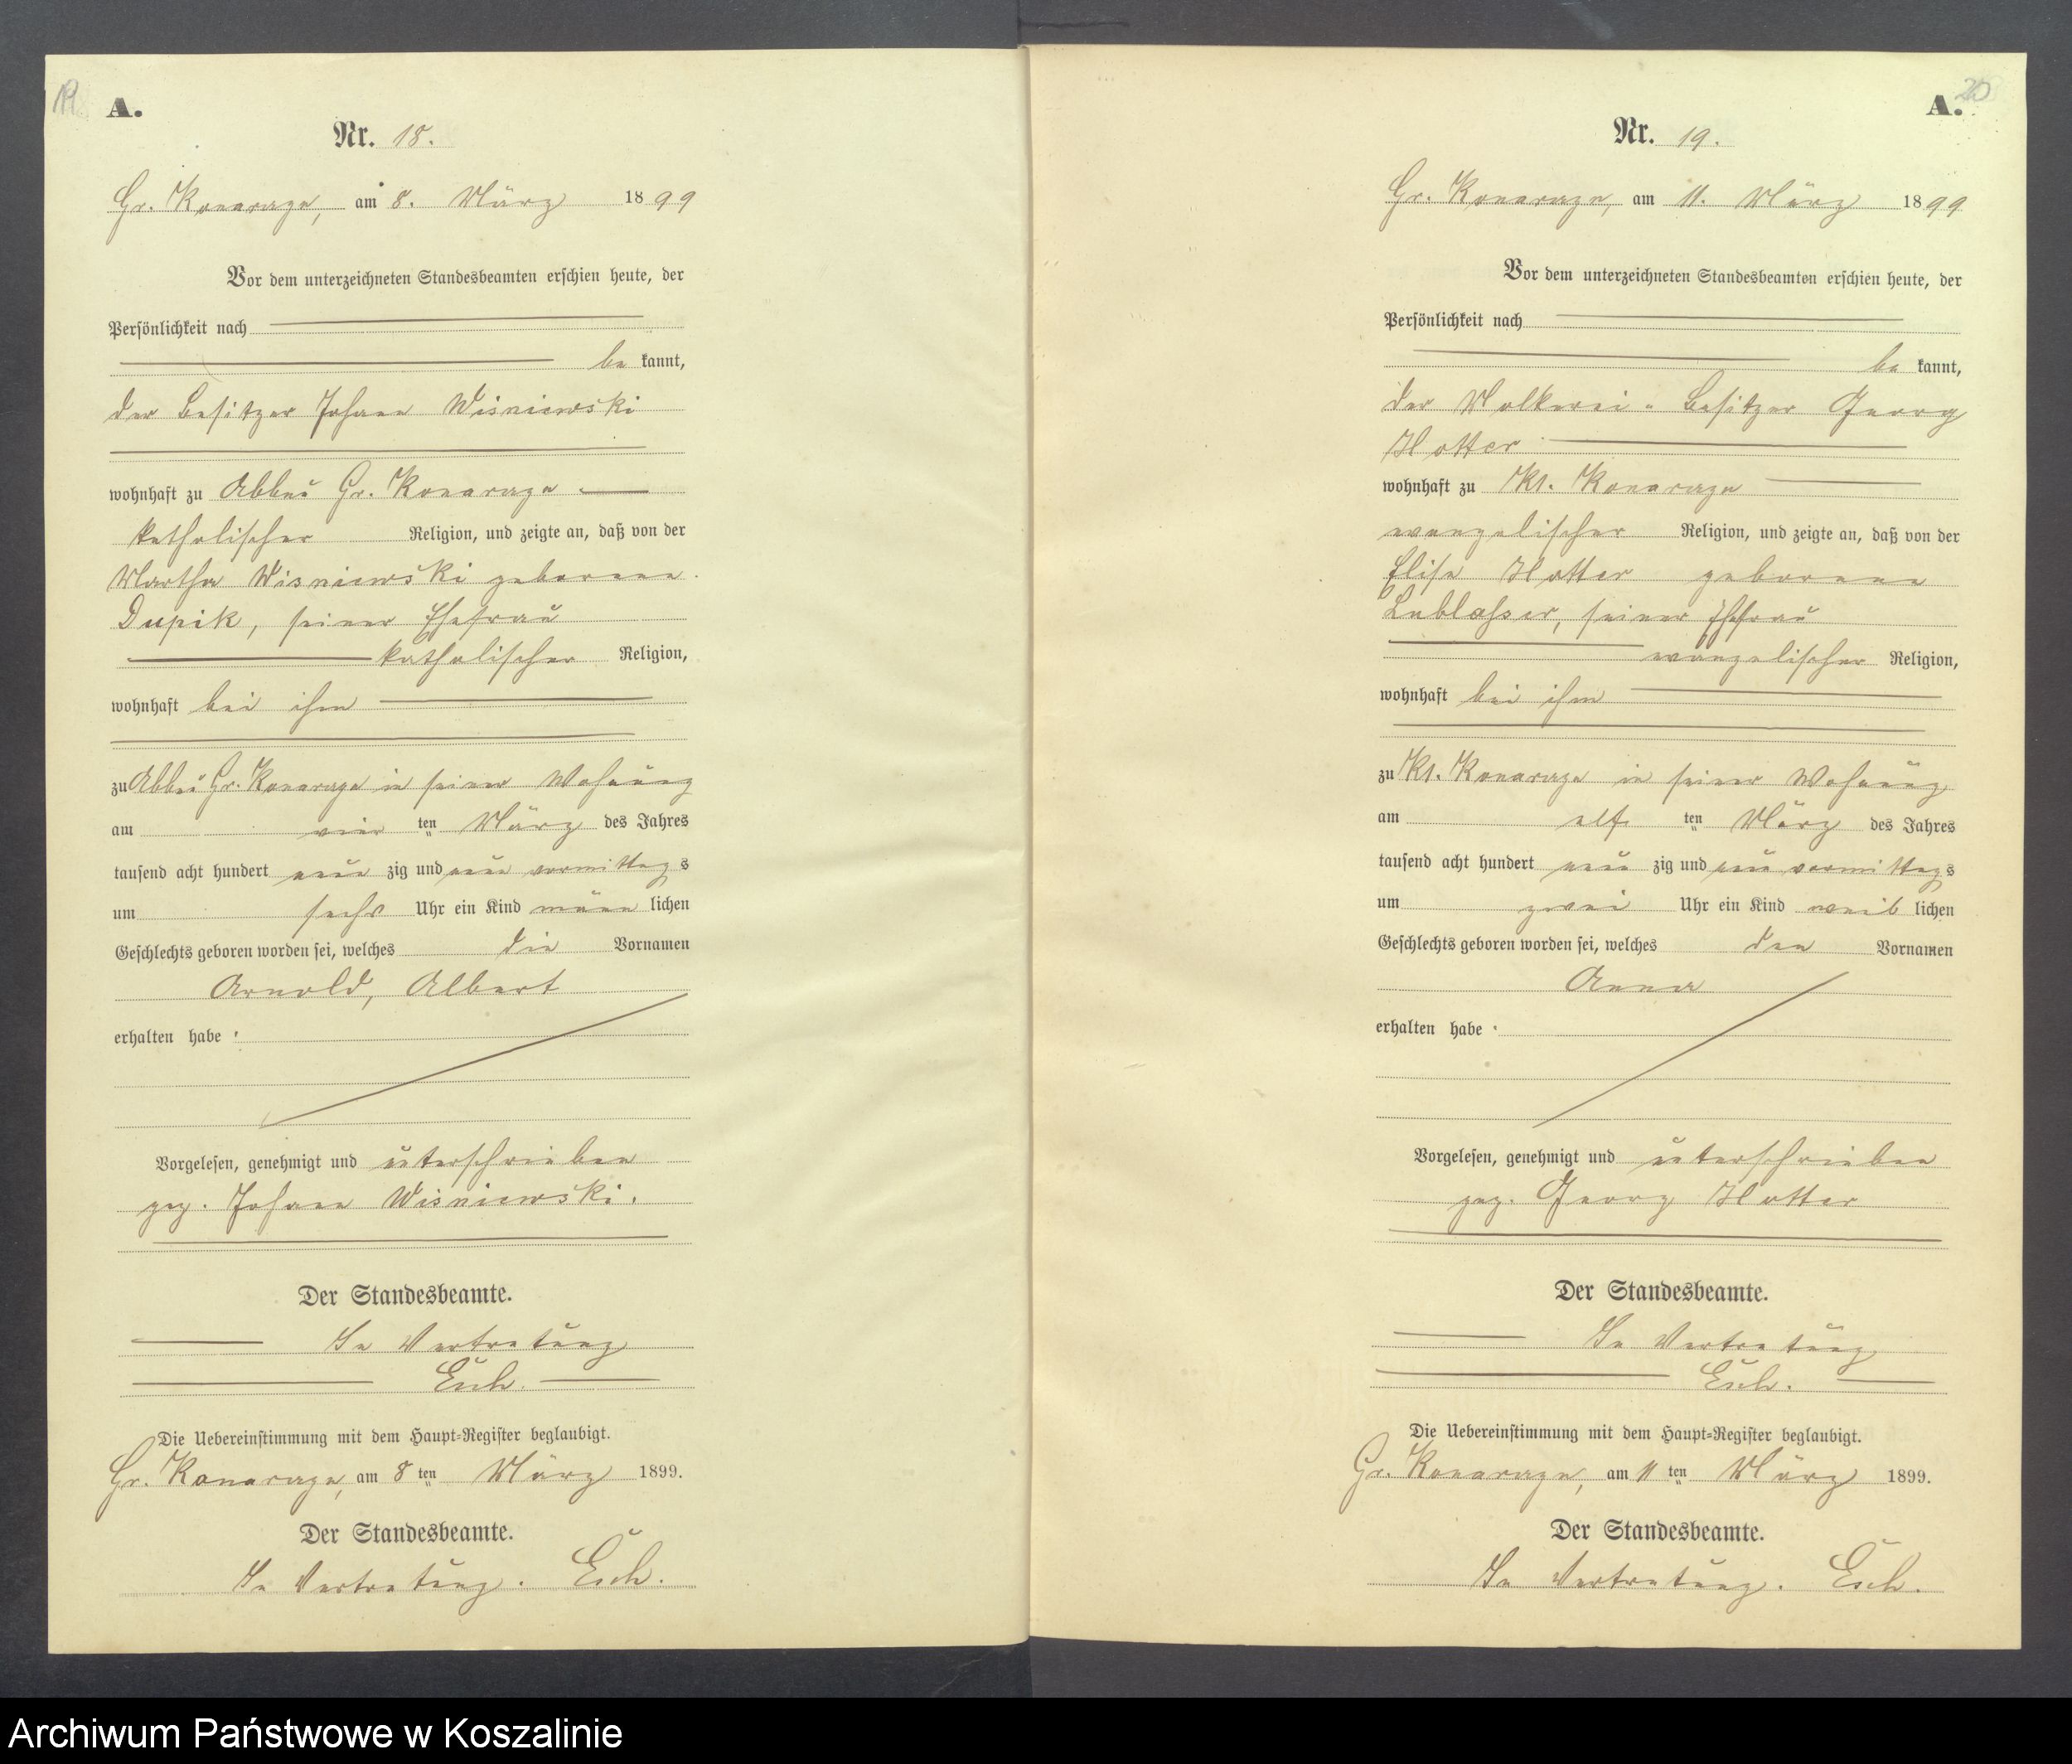 A.
Nr. 18.
Gr. Konarczyn, am 8. März 1899
Vor dem unterzeichneten Standesbeamten erschien heute, der
Persönlichkeit nach
be kannt,
der Besitzer Johann Wisniewski
wohnhaft zu Abbau Gr. Konarczyn
katholischer Religion, und zeigte an, daß von der
Martha Wisniewski geborene
Dupik, seiner Ehefrau
katholischer Religion,
wohnhaft bei ihm
zu Abbau Gr. Konarczyn in seiner Wohnung
am vier ten März des Jahres
tausend acht hundert neun zig und neun vormittags
um sechs Uhr ein Kind männ lichen
Geschlechts geboren worden sei, welches die Vornamen
Arnold, Albert
erhalten habe.
Vorgelesen, genehmigt und unterschrieben
gez. Johann Wisniewski.
Der Standesbeamte.
In Vertretung
Die Uebereinstimmung mit dem Haupt-Register beglaubigt.
Gr. Konarczyn, am 8 ten März 1899.
Der Standesbeamte.
In Vertretung.
20
A.
Nr. 19.
Gr. Konarczyn, am 11. März 1899
Vor dem unterzeichneten Standesbeamten erschien heute, der
Persönlichkeit nach
be kannt,
der Molkerei-Besitzer Georg
Hotter
wohnhaft zu Kl. Konarczyn
evangelischer Religion, und zeigte an, daß von der
Elise Hotter geborene
seiner Ehefrau
evangelischer Religion,
wohnhaft bei ihm
zu Kl. Konarczyn in seiner Wohnung
am elf ten März des Jahres
tausend acht hundert neun zig und neun vormittags
um zwei Uhr ein Kind weib lichen
Geschlechts geboren worden sei, welches den Vornamen
Anna
erhalten habe.
Vorgelesen, genehmigt und unterschrieben
gez. Georg Hotter
Der Standesbeamte.
In Vertretung
Die Uebereinstimmung mit dem Haupt-Register beglaubigt.
Gr. Konarczyn, am 11 ten März 1899.
Der Standesbeamte.
In Vertretung.
Archiwum Państwowe w Koszalinie